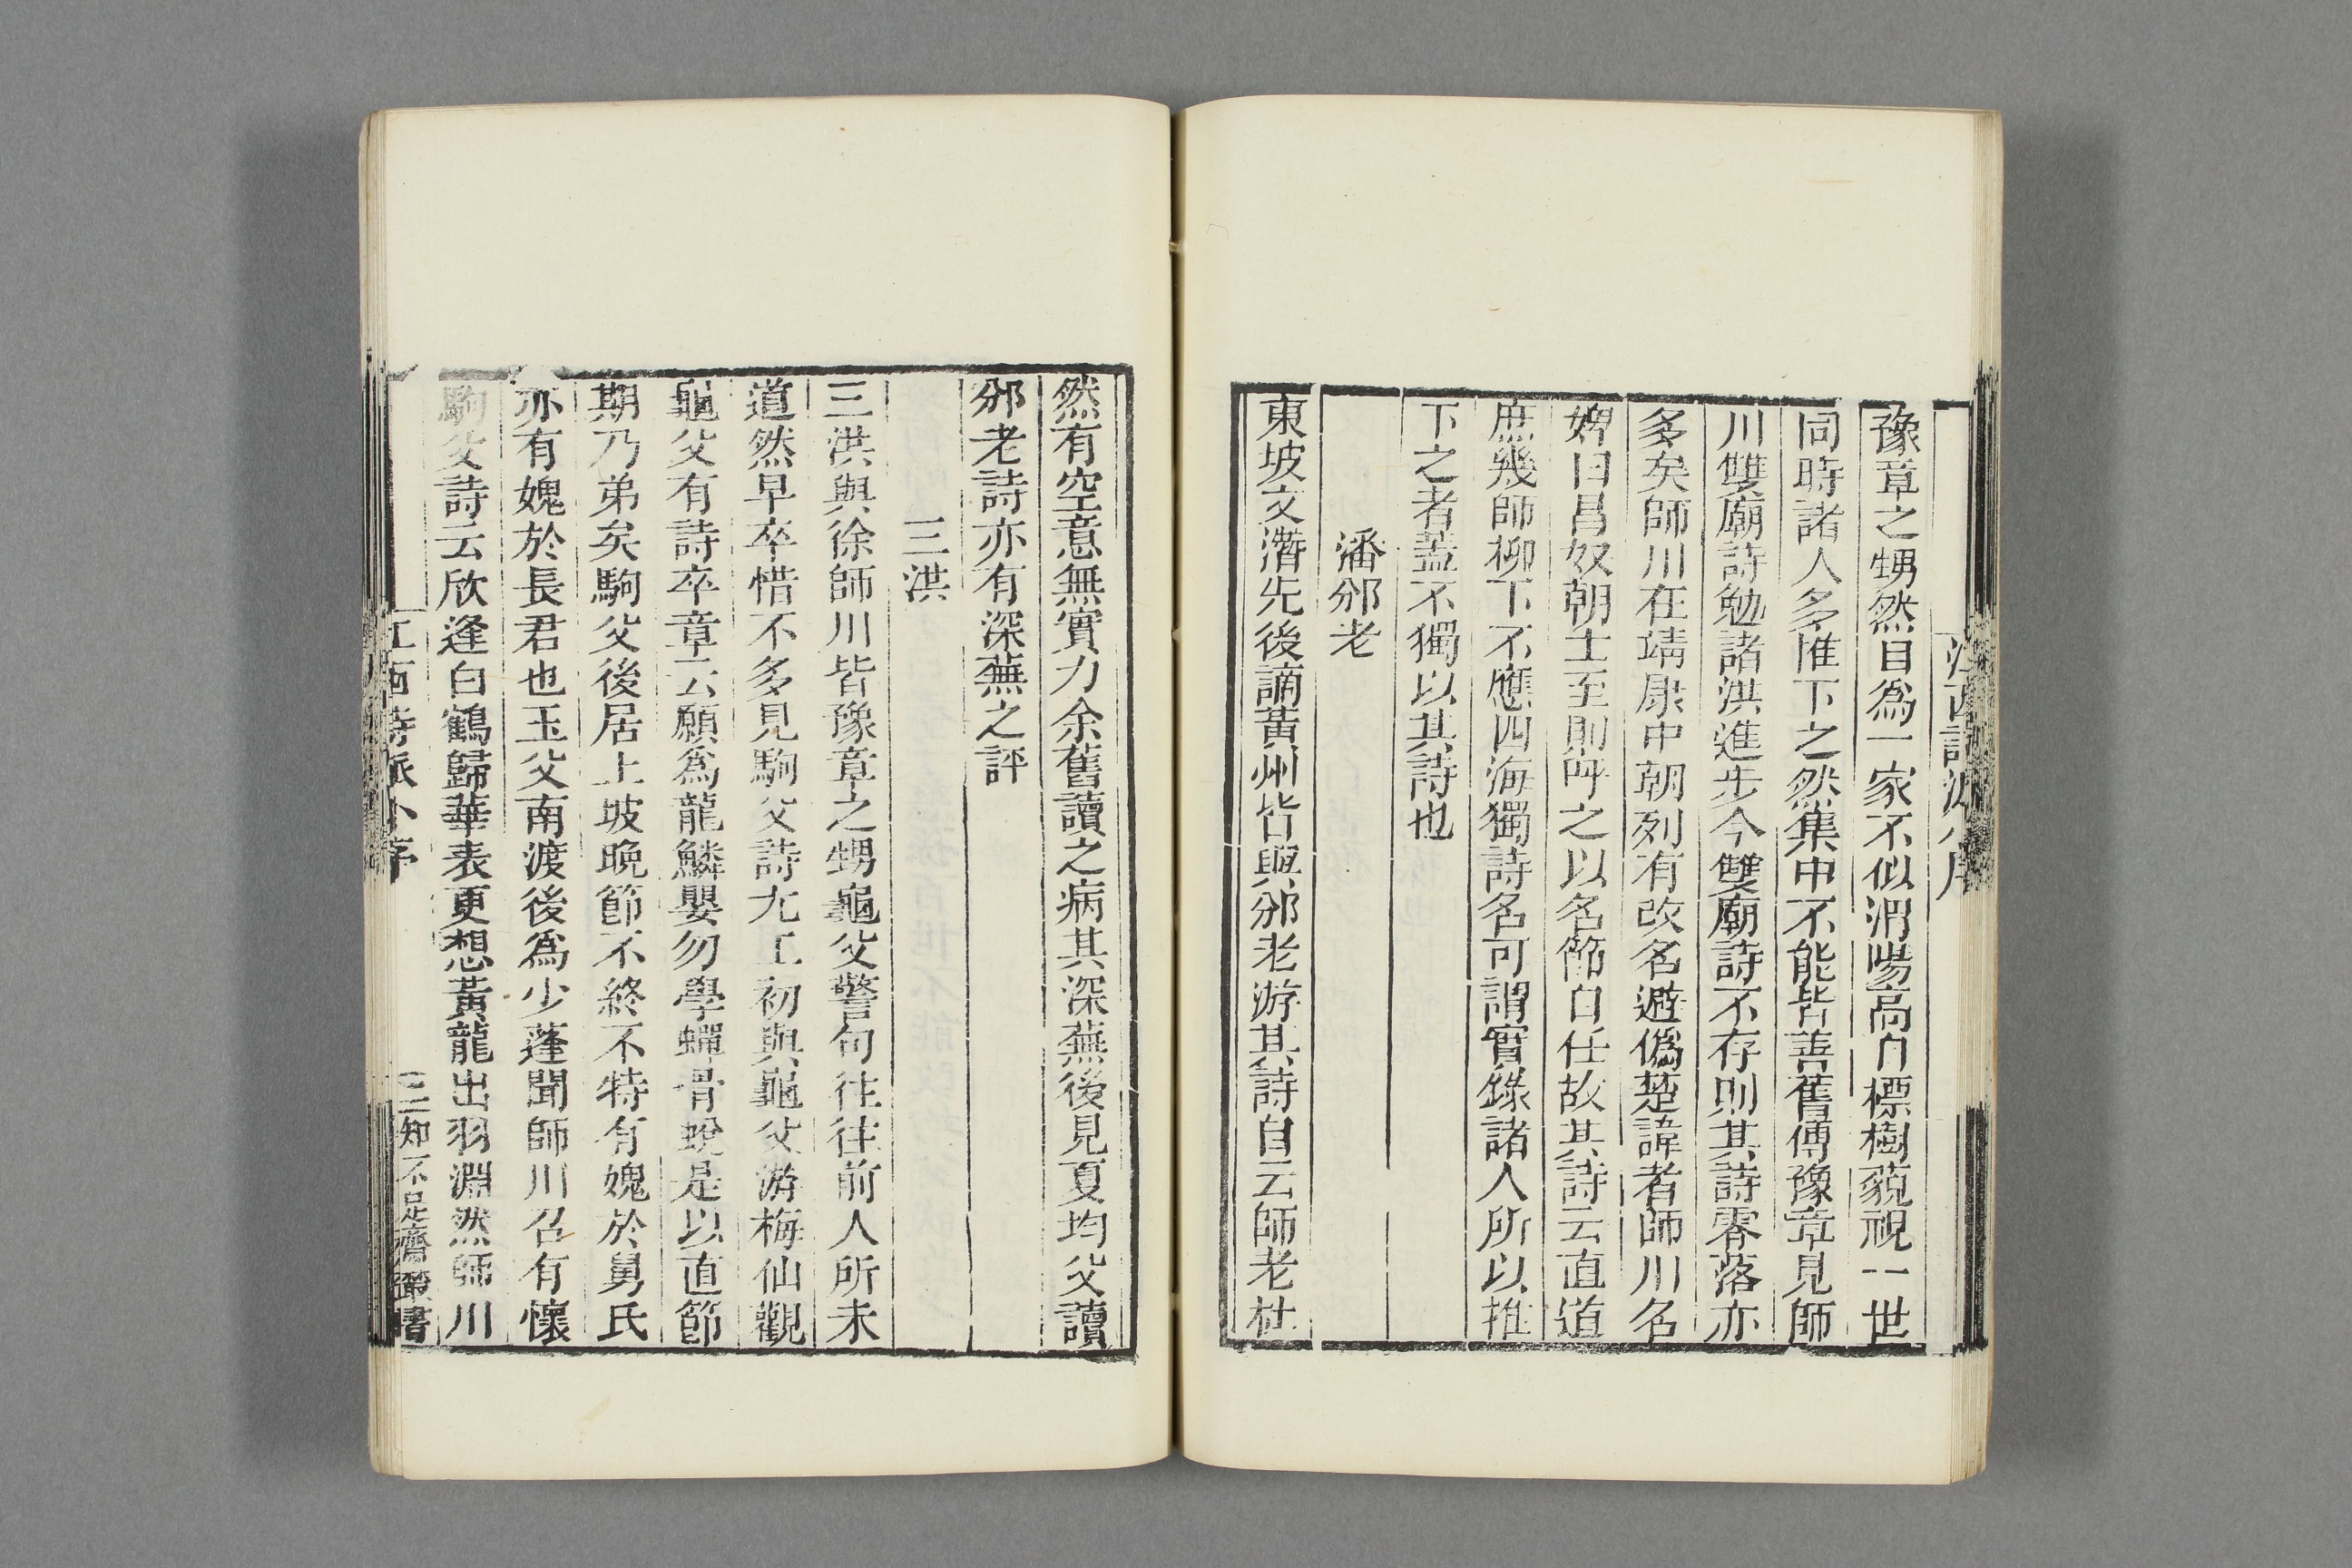 豫章之甥然自爲一家不似渭陽高自標樹藐視一世
同時諸人多推下之然集中不能皆善舊傳豫章見師
川雙廟詩勉諸洪進步今雙廟詩不存則其詩零落亦
多矣師川在靖康中朝列有改名避僞楚諱者師川名
婢曰昌奴朝士至則呼之以名節自任故其詩云直道
庶幾師柳下不應四海獨詩名可謂實錄諸人所以推
下之者蓋不獨以其詩也
潘邠老
東坡文潛先後謫黃州皆與邠老游其詩自云師老杜
然有空意無實力余舊讀之病其深蕪後見夏均父讀
邠老詩亦有深蕪之評
三洪
三洪與徐師川皆豫章之甥龜父警句往往前人所未
道然早卒惜不多見駒父詩尤工初與龜父游梅仙觀
龜父有詩卒章云願爲龍鱗嬰勿學蟬骨蛻是以直節
期乃弟矣駒父後居上坡晚節不終不特有媿於舅氏
亦有媿於長君也玉父南渡後爲少蓬聞師川召有懷
駒父詩云欣逢白鶴歸華表更想黃龍出羽淵然師川
江西詩派小序
三 知不足齋叢書